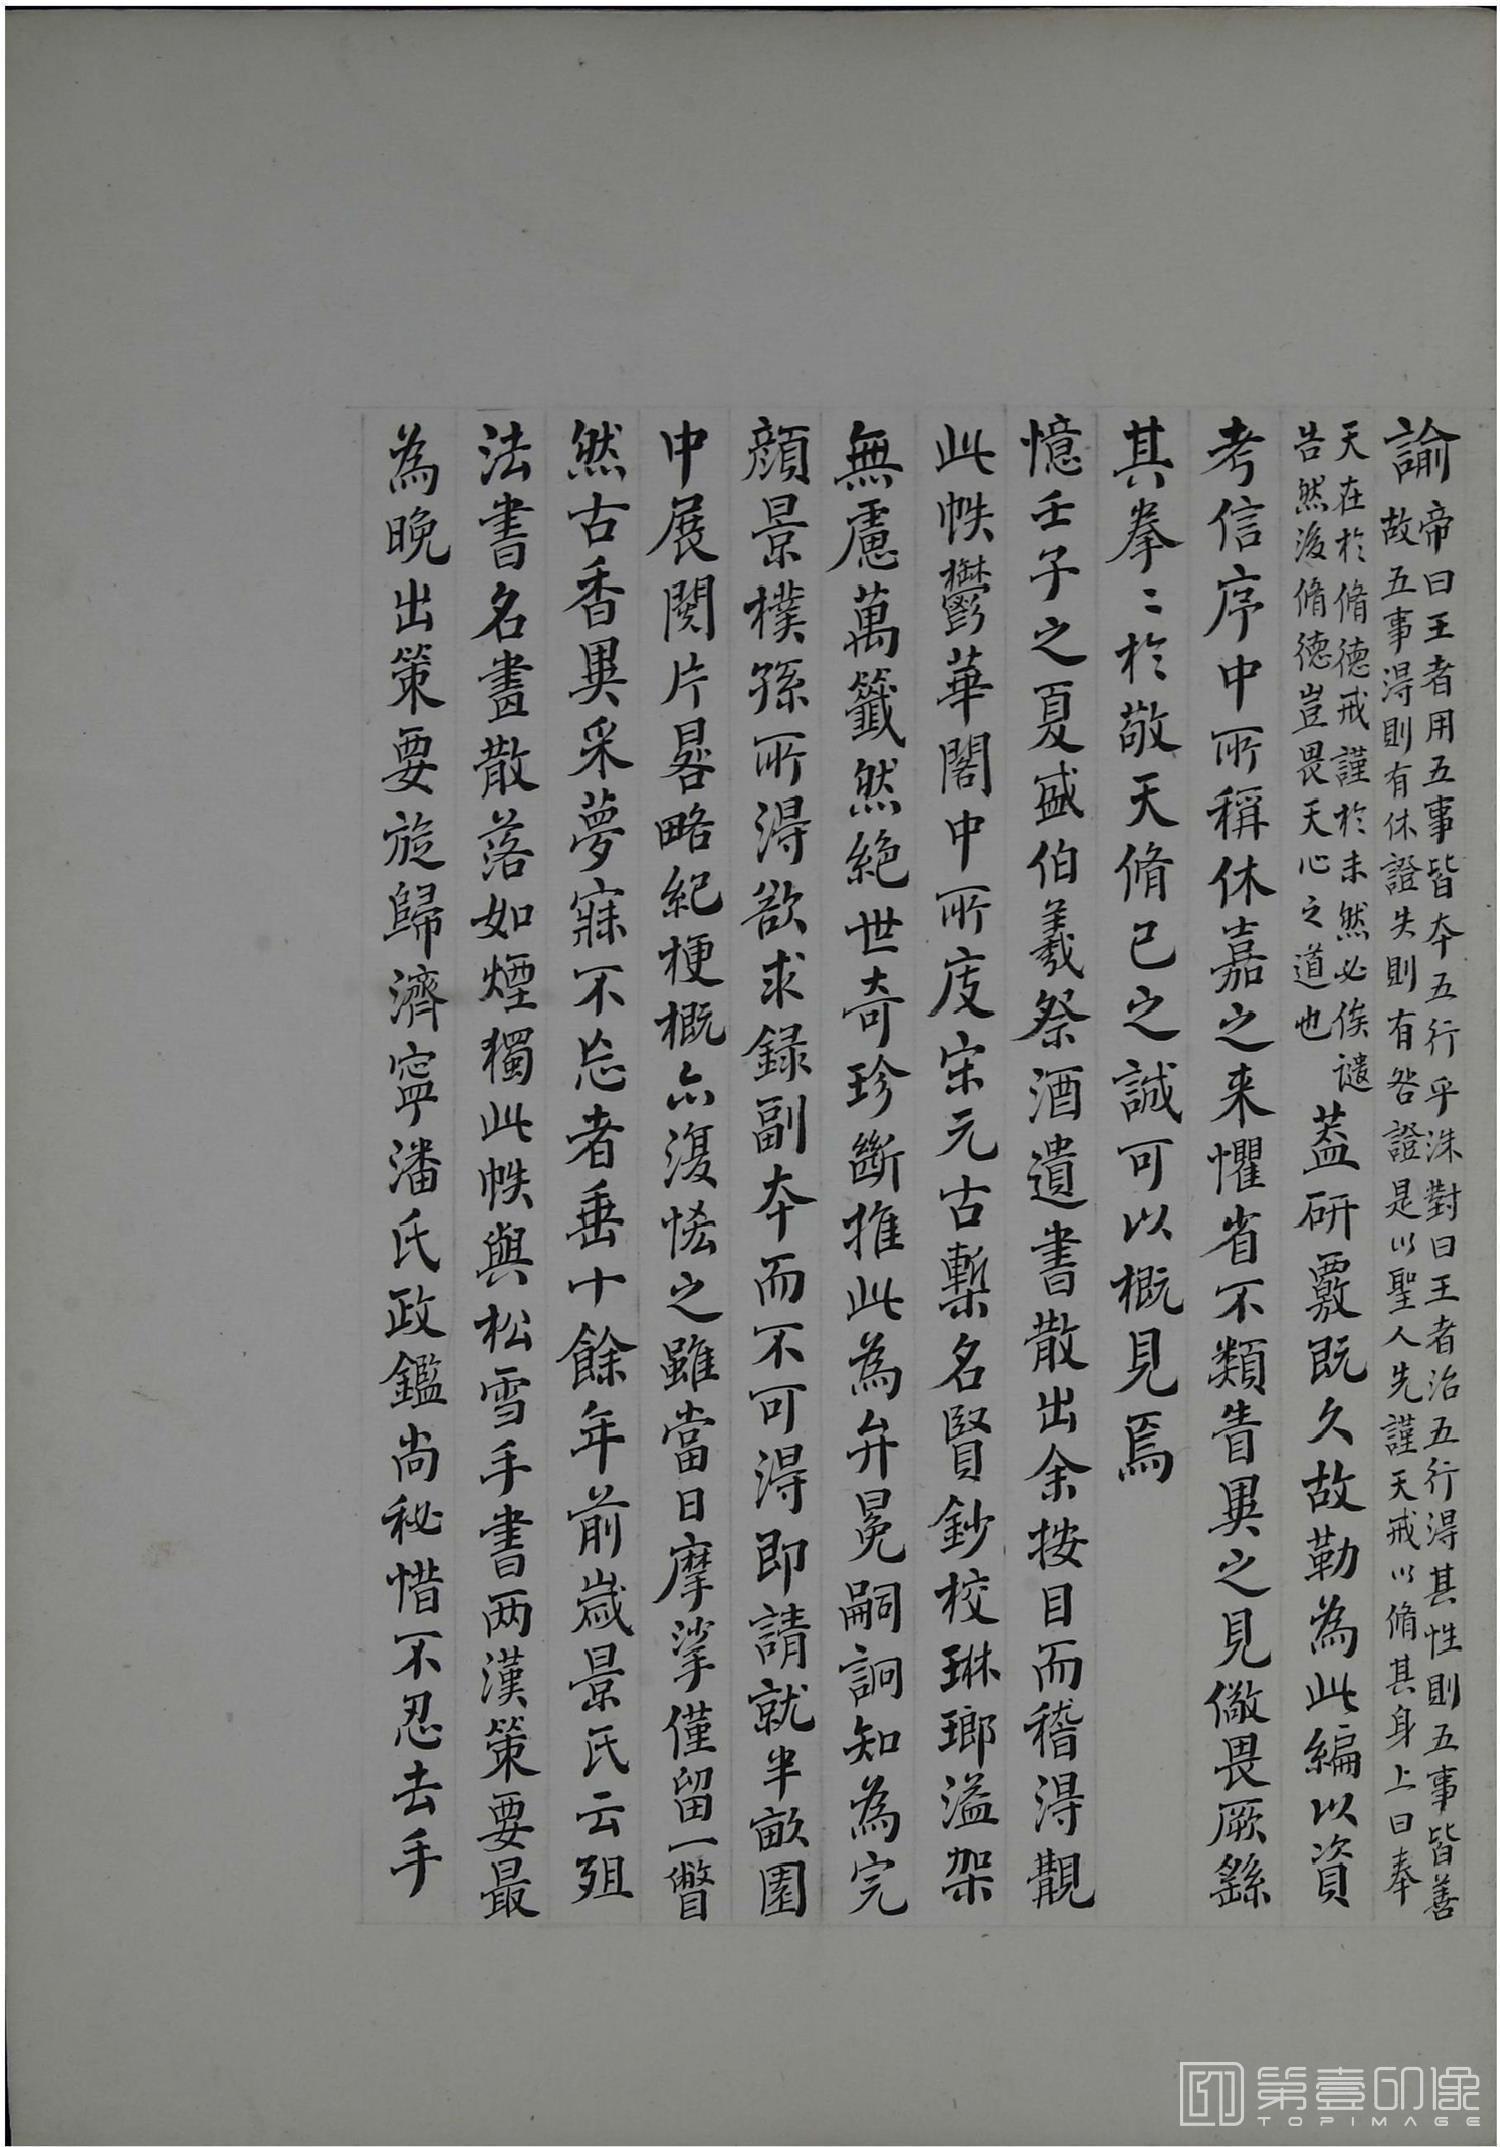 諭帝曰王者用五事皆本五行乎洙對曰王者治五行得其性則五事皆善
故五事得則有休證失則有咎證是以聖人先謹天戒以脩其身上曰奉
天在於脩德戒謹於未然必俟譴
告然後脩德豈畏天心之道也
蓋研覈既久故勒為此編以資
考信序中所稱休嘉之来懼省不類眚異之見儆畏厥繇
其拳〻於敬天脩已之誠可以概見焉
憶壬子之夏盛伯羲祭酒遺書散出余按目而稽得覩
此帙鬱華閣中所庋宋元古槧名賢鈔校琳瑯溢架
無慮萬籤然絶世奇珍斷推此為弁冕嗣詗知為完
顔景樸孫所得欲求録副本而不可得即請就半畝園
中展閱片晷略紀梗概亦復恡之雖當日摩挲僅留一瞥
然古香異采夢寐不忘者垂十餘年前嵗景氏云殂
法書名畫散落如煙獨此帙與松雪手書两漢策要最
為晚出策要旋歸濟寧潘氏政鑑尚秘惜不忍去手
第壹印像
TOPIMAGE